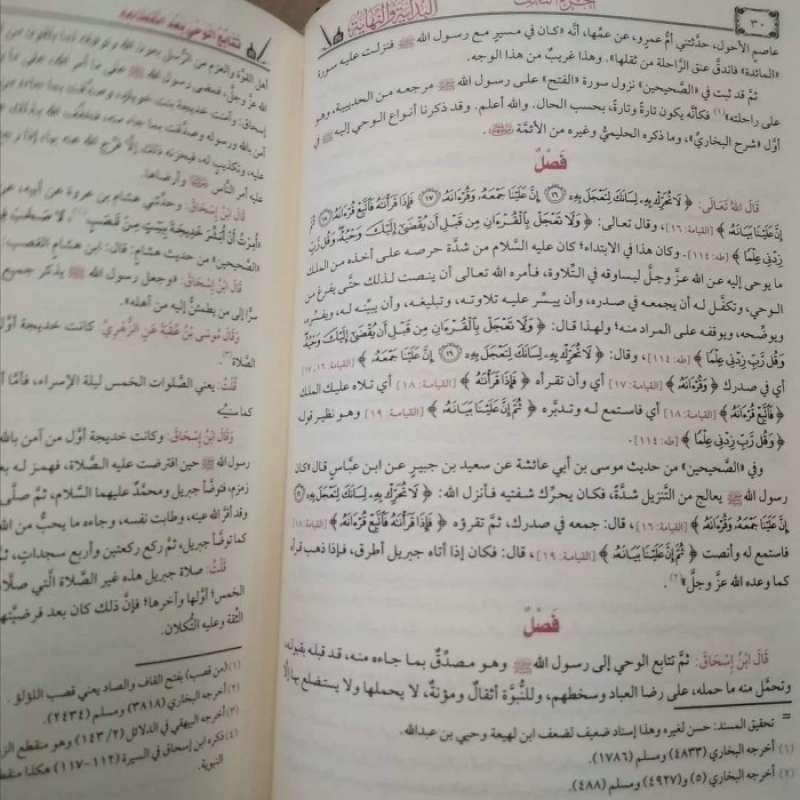 ٣٠
البداية والنهاية
عاصم الأحول، حدّثتني أم عمرو، عن عمّها، أنّه «كان في مسير مع رسول الله ﷺ فنزلت عليه سورة
«المائدة» فاندقّ عنق الرّاحلة من ثقلها». وهذا غريبٌ من هذا الوجه.
ثمّ قد ثبت في «الصّحيحين» نزول سورة «الفتح» على رسول الله ﷺ مرجعه من الحديبية، وهو
على راحلته»(١) فكأنّه يكون تارةً وتارةً، بحسب الحال. والله أعلم. وقد ذكرنا أنواع الوحي إليه ﷺ في
أوّل «شرح البخاريّ»، وما ذكره الحليميُّ وغيره من الأئمّة
فَصْلٌ
قَالَ اللهُ تَعَالَى: ﴿ لَا تُحَرِّكْ بِهِ لِسَانَكَ لِتَعْجَلَ بِهِ ۝١٦ إِنَّ عَلَيْنَا جَمْعَهُ وَقُرْءَانَهُ ۝١٧ فَإِذَا قَرَأْنَٰهُ فَٱتَّبِعْ قُرْءَانَهُ ۝١٨ ثُمَّ
إِنَّ عَلَيْنَا بَيَانَهُ ﴾ [القيامة: ١٦]، وقال تعالى: ﴿ وَلَا تَعْجَلْ بِٱلْقُرْءَانِ مِن قَبْلِ أَن يُقْضَىٰ إِلَيْكَ وَحْيُهُ وَقُل رَّبِّ
زِدْنِي عِلْمًا ﴾ [طه: ١١٤]. وكان هذا في الابتداء؛ كان عليه السلام من شدّة حرصه على أخذه من الملك
ما يوحى إليه عن الله عزّ وجلّ ليساوقه في التّلاوة، فأمره الله تعالى أن ينصت لذلك حتّى يفرغ من
الوحي، وتكفّل له أن يجمعه في صدره، وأن ييسّر عليه تلاوته، وتبليغه، وأن يبيّنه له، ويفسّره
ويوضّحه، ويوقفه على المراد منه؛ ولهذا قال: ﴿ وَلَا تَعْجَلْ بِٱلْقُرْءَانِ مِن قَبْلِ أَن يُقْضَىٰ إِلَيْكَ وَحْيُهُ
وَقُل رَّبِّ زِدْنِي عِلْمًا ﴾ [طه: ١١٤]، وقال: ﴿ لَا تُحَرِّكْ بِهِ لِسَانَكَ لِتَعْجَلَ بِهِ ۝١٦ إِنَّ عَلَيْنَا جَمْعَهُ ﴾ [القيامة: ١٦، ١٧]
أي في صدرك ﴿ وَقُرْءَانَهُ ﴾ [القيامة: ١٧] أي وأن تقرأه ﴿ فَإِذَا قَرَأْنَٰهُ ﴾ [القيامة: ١٨] أي تلاه عليك الملك
﴿ فَٱتَّبِعْ قُرْءَانَهُ ﴾ [القيامة: ١٨] أي فاستمع له وتدبّره ﴿ ثُمَّ إِنَّ عَلَيْنَا بَيَانَهُ ﴾ [القيامة: ١٩] وهو نظير قوله
﴿ وَقُل رَّبِّ زِدْنِي عِلْمًا ﴾ [طه: ١١٤].
وفي «الصّحيحين» من حديث موسى بن أبي عائشة عن سعيد بن جبير عن ابن عبّاس قال «كان
رسول الله ﷺ يعالج من التّنزيل شدّةً، فكان يحرّك شفتيه فأنزل الله: ﴿ لَا تُحَرِّكْ بِهِ لِسَانَكَ لِتَعْجَلَ بِهِ ۝١٦
إِنَّ عَلَيْنَا جَمْعَهُ وَقُرْءَانَهُ ﴾ [القيامة: ١٦]، قال: جمعه في صدرك، ثمّ تقرؤه ﴿ فَإِذَا قَرَأْنَٰهُ فَٱتَّبِعْ قُرْءَانَهُ ﴾ [القيامة: ١٨]
فاستمع له وأنصت ﴿ ثُمَّ إِنَّ عَلَيْنَا بَيَانَهُ ﴾ [القيامة: ١٩]، قال: فكان إذا أتاه جبريل أطرق، فإذا ذهب قرأه
كما وعده الله عزّ وجلّ»(٢).
فَصْلٌ
قَالَ ابْنُ إِسْحَاقَ: ثمّ تتابع الوحي إلى رسول الله ﷺ وهو مصدّقٌ بما جاءه منه، قد قبله بقبوله،
وتحمّل منه ما حمله، على رضا العباد وسخطهم، وللنّبوّة أثقالٌ ومؤنةٌ، لا يحملها ولا يستضلع بها إلّا
= تحقيق المسند: حسن لغيره وهذا إسناد ضعيف لضعف ابن لهيعة وحيي بن عبدالله.
(١) أخرجه البخاري (٤٨٣٣) ومسلم (١٧٨٦).
(٢) أخرجه البخاري (٥) و(٤٩٢٧) ومسلم (٤٨٨).
أهل القوّة والعزم من الرّسل بعون الله وتوفيقه
الله عزّ وجلّ، فمضى رسول الله ﷺ على ما أمر
إسحاق: وآمنت خديجة بنت خويلد
آمن بالله ورسوله وصدّقت بما جاء منه،
عليه، وتكذيبٍ له، فيحزنه ذلك إلّا فرّج الله عنه
عليه أمر النّاس وأرضاها.
قَالَ ابْنُ إِسْحَاقَ: وحدّثني هشام بن عروة عن أبيه، عن
«أُمِرْتُ أَنْ أُبَشِّرَ خَدِيجَةَ بِبَيْتٍ مِنْ قَصَبٍ(١)، لَا صَخَبَ فِي
«الصّحيحين» من حديث هشام. قال: ابن هشام القصب:
قَالَ ابْنُ إِسْحَاقَ: «وجعل رسول الله ﷺ يذكر جميع
سرًّا إلى من يطمئنُّ إليه من أهله».
وَقَالَ مُوسَى بْنُ عُقْبَةَ عَنِ الزُّهْرِيِّ: كانت خديجة أوّل
الصّلاة(٣).
قُلْتُ: يعني الصّلوات الخمس ليلة الإسراء، فأمّا أ
كما سنبيّنه
وَقَالَ ابْنُ إِسْحَاقَ: وكانت خديجة أوّل من آمن بالله
رسول الله ﷺ حين افترضت عليه الصّلاة، فهمز له بع
زمزم، فتوضّأ جبريل ومحمّدٌ عليهما السّلام، ثمّ صلّى
وقد أقرّ الله عينه، وطابت نفسه، وجاءه ما يحبُّ من الله
كما توضّأ جبريل، ثمّ ركع ركعتين وأربع سجداتٍ، ثمّ
قُلْتُ: صلاة جبريل هذه غير الصّلاة الّتي صلّا
الخمس؛ أوّلها وآخرها؛ فإنّ ذلك كان بعد فرضيّتها
الثّقة وعليه التُّكلان.
(١) (من قصب) بفتح القاف والصاد يعني قصب اللؤلؤ.
(٢) أخرجه البخاري (٣٨١٨) ومسلم (٢٤٣٤).
(٣) أخرجه البيهقي في الدلائل (١٤٣/٢) وهو منقطع
(٤) ذكره ابن إسحاق في السيرة (١١٢-١١٧) هكذا منقط
النبوية.